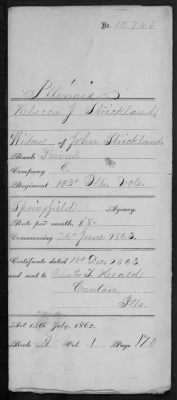 No. 10.765
Illinois
Rebecca J Strickland
Widow of John Strickland
Rank Private
Company C
Regiment 103d Ills Vols.
Springfield Agency.
Rate per month, $8.
Commencing 26th June 1863.
Certificate dated 18th Dec. 1863
and sent to Charles T. Heralds
Canton
Ills.
Act 14th July, 1862.
Book A Vol. 1 Page 170